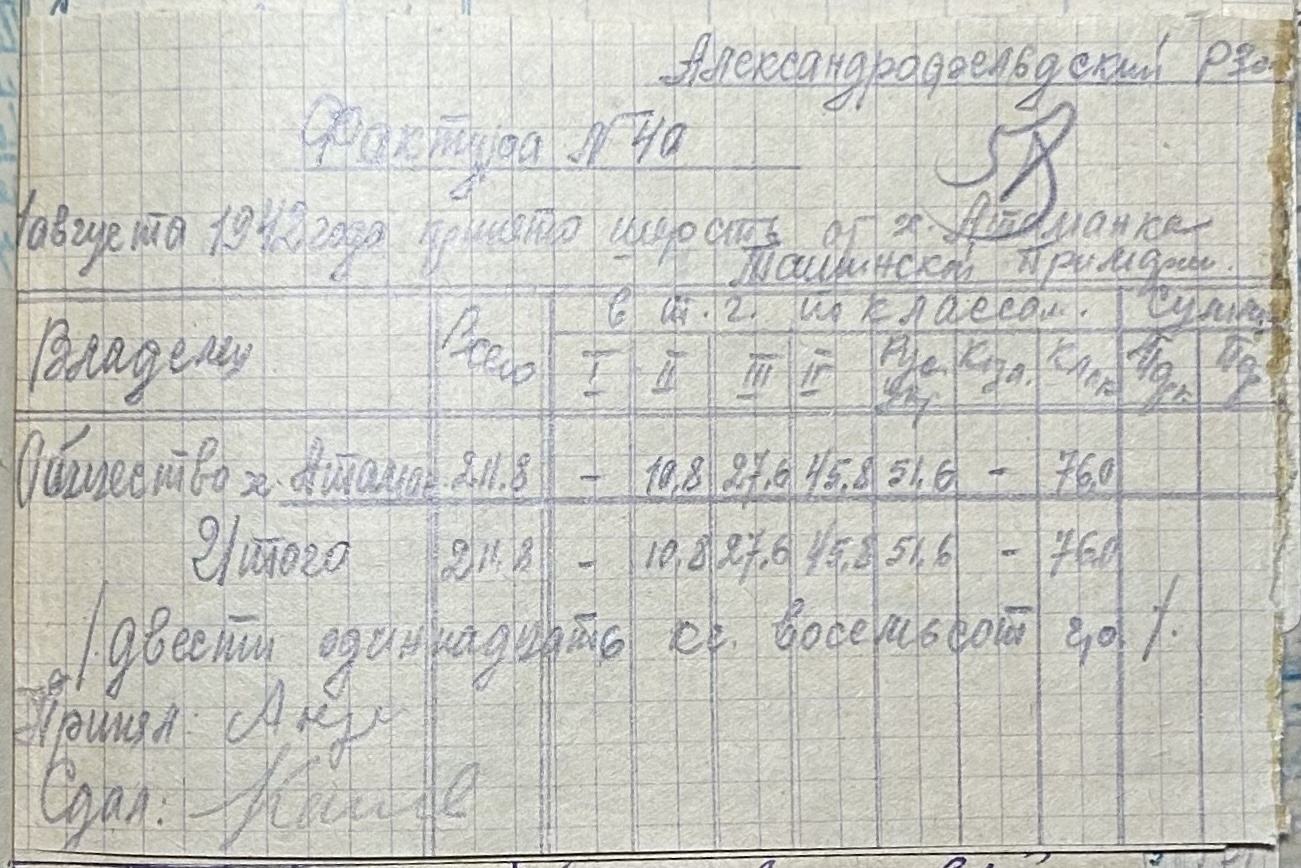 Александрофельдский РЗо
Фактура № 40
58
1 августа 1942 года принято шерсть от х. Атаманка
Владелец Всего в т.ч. по классам. Сумма
I II III IV Руд. Коз. Клок
Общество х. Атаман 211.8 - 10,8 27,6 45,8 51,6 - 76,0
Итого 211.8 - 10,8 27,6 45,8 51,6 - 76,0
/. двести одиннадцать кг. восемьсот гр. /.
Принял:
Сдал: